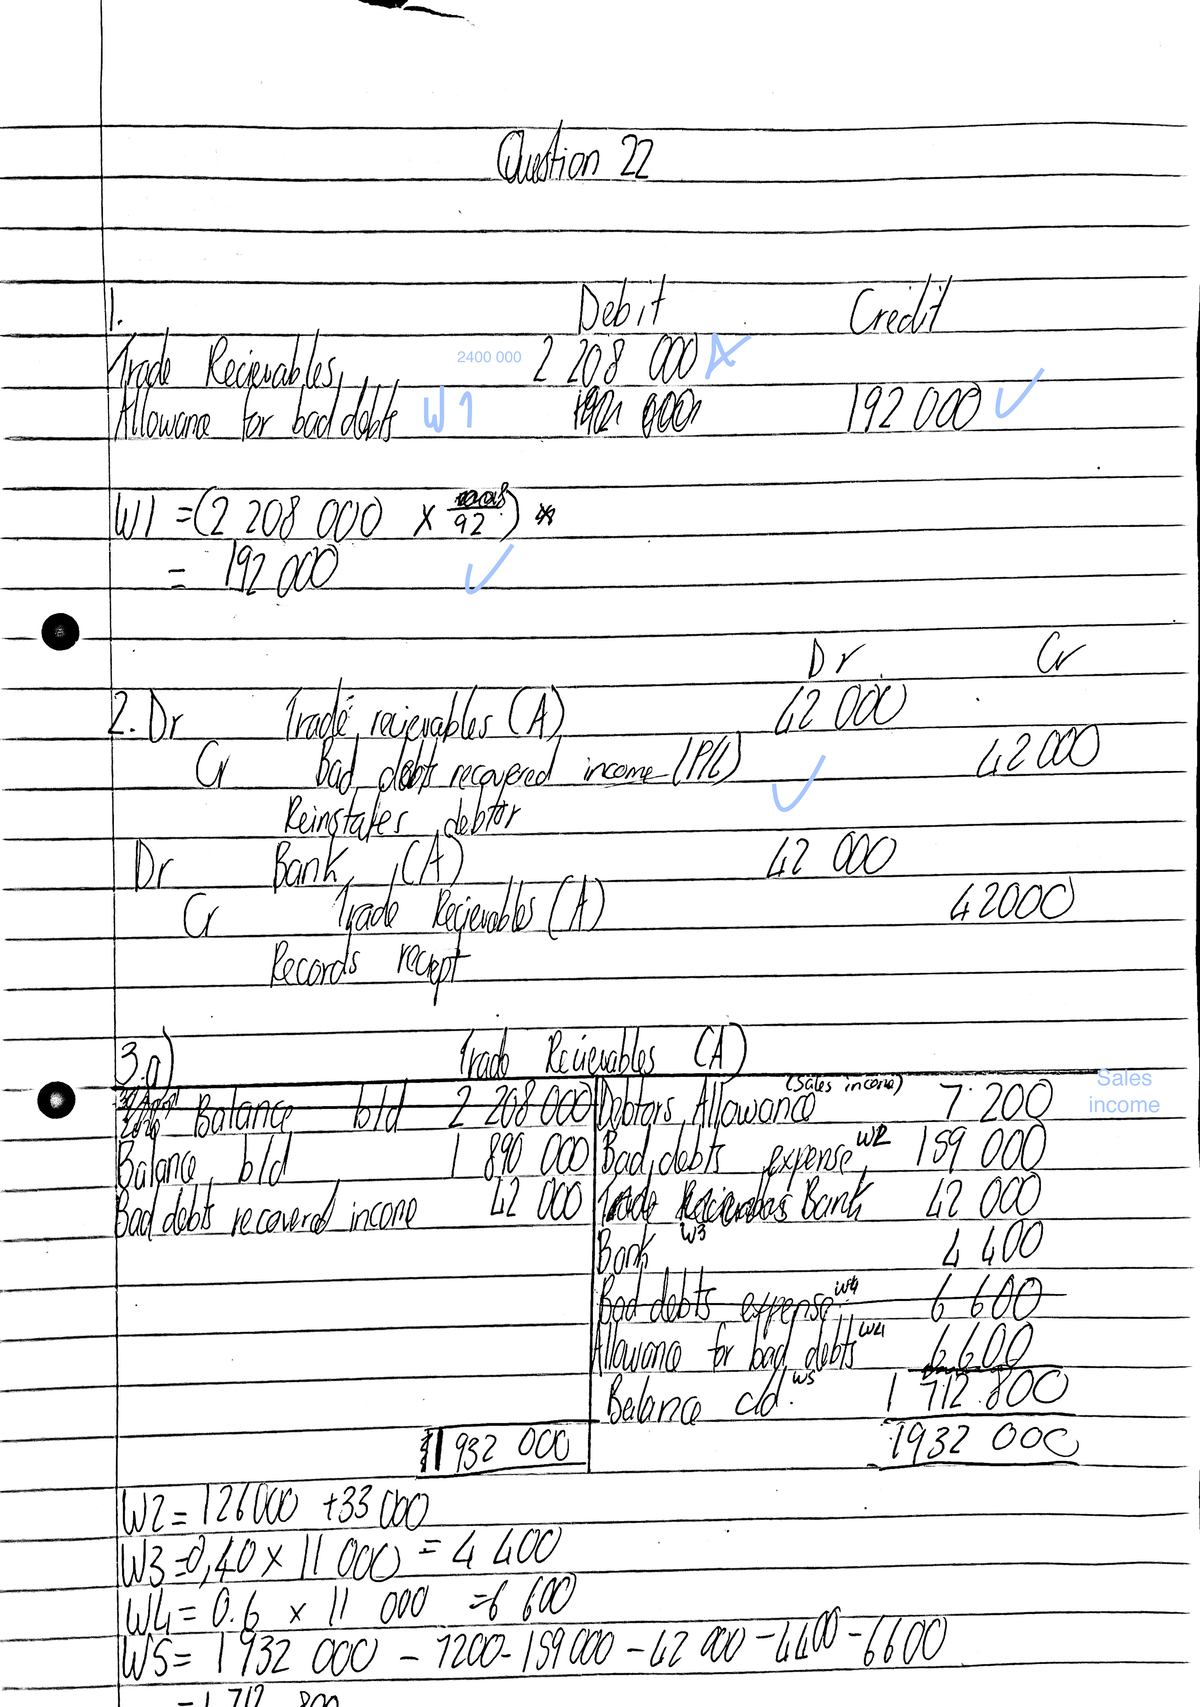 Question 22
1. Debit Credit
Trade Recievables, 2400 000 2 208 000
Allowance for bad debts W1 192 000 192 000
W1 = (2 208 000 × 8/92)
= 192 000
Dr Cr
2. Dr Trade recievables (A) 42 000
Cr Bad debts recovered income (P/L) 42 000
Reinstates debtor
Dr Bank (A) 42 000
Cr Trade Recievables (A) 42000
Records reciept
3.a) Trade Recievables (A)
Balance b/d 2 208 000 Debtors Allowance (Sales income) 7 200 Sales income
Balance b/d 1 890 000 Bad debts expense W2 159 000
Bad debts recovered income 42 000 Trade Recievables Bank 42 000
Bank W3 4 400
Bad debts expense W4 6 600
Allowance for bad debts W4 6 600
Balance c/d. W5 1 712 800
1 932 000 1932 000
W2 = 126000 + 33 000
W3 = 0,40 × 11 000 = 4 400
W4 = 0.6 × 11 000 = 6 600
W5 = 1 932 000 - 7200 - 159 000 - 42 000 - 4400 - 6600
= 1 712 800